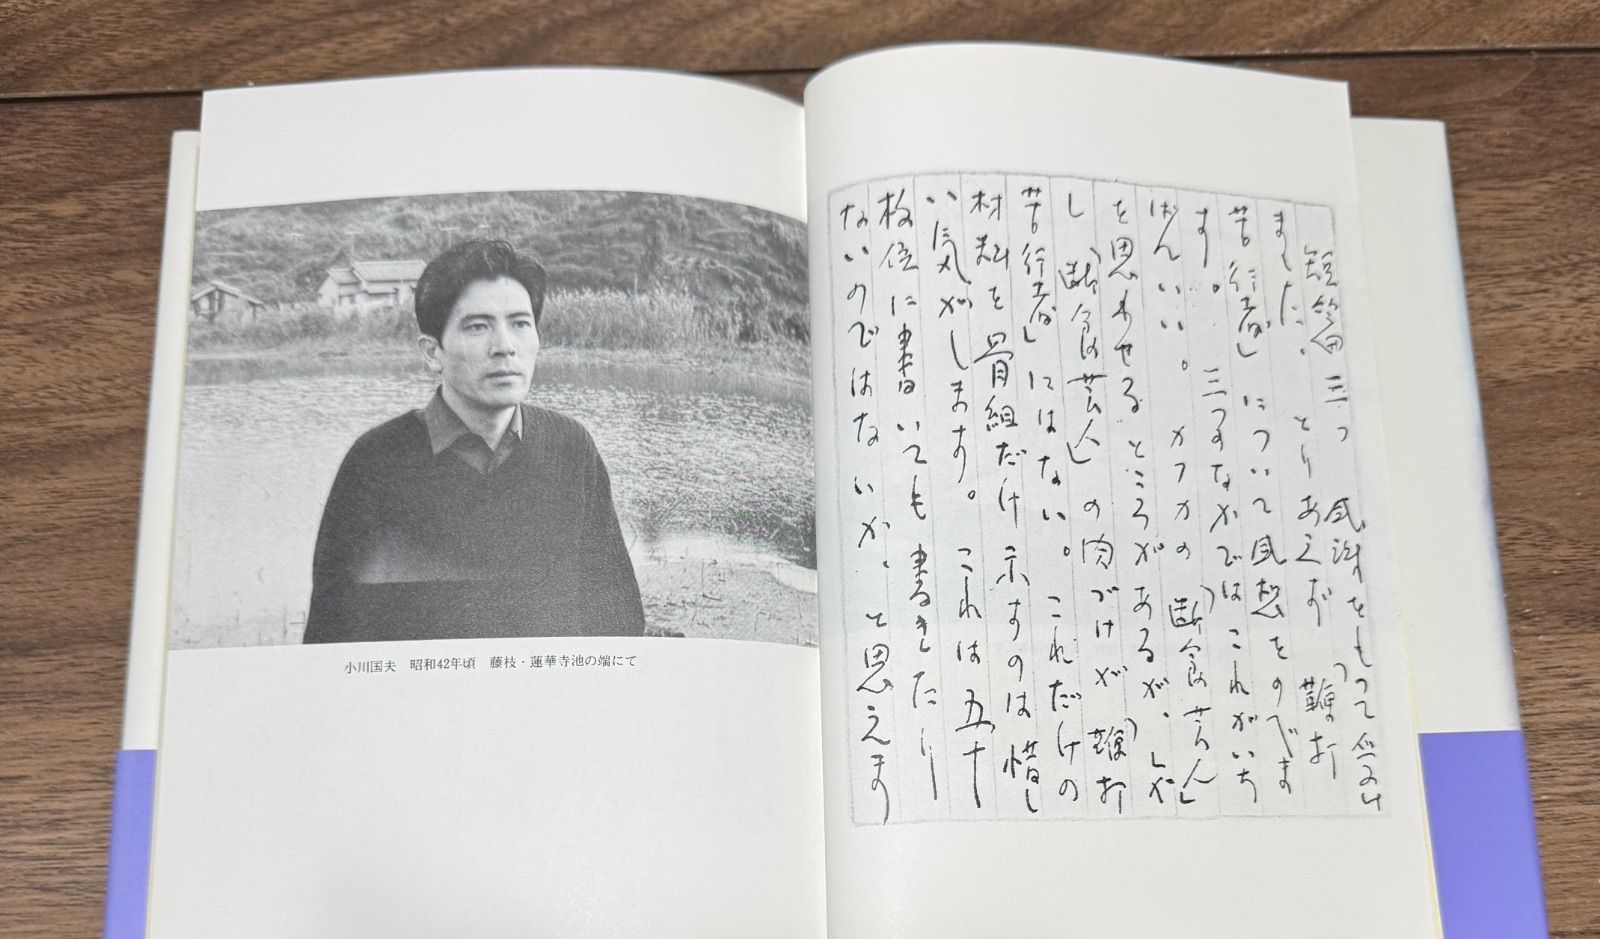 小川国夫　昭和42年頃　藤枝・蓮華寺池の端にて
短篇三つ　感謝をもって受け
ました。とりあえず「鞭打
苦行者」について感想をのべま
す。三つのなかではこれがいち
ばんいい。カフカの「断食芸人」
を思わせるところがあるが、しか
し「断食芸人」の肉づけが「鞭打
苦行者」にはない。これだけの
材料を骨組だけ示すのは惜し
い気がします。これは五十
枚位に書いても書きたり
ないのではないか、と思えます